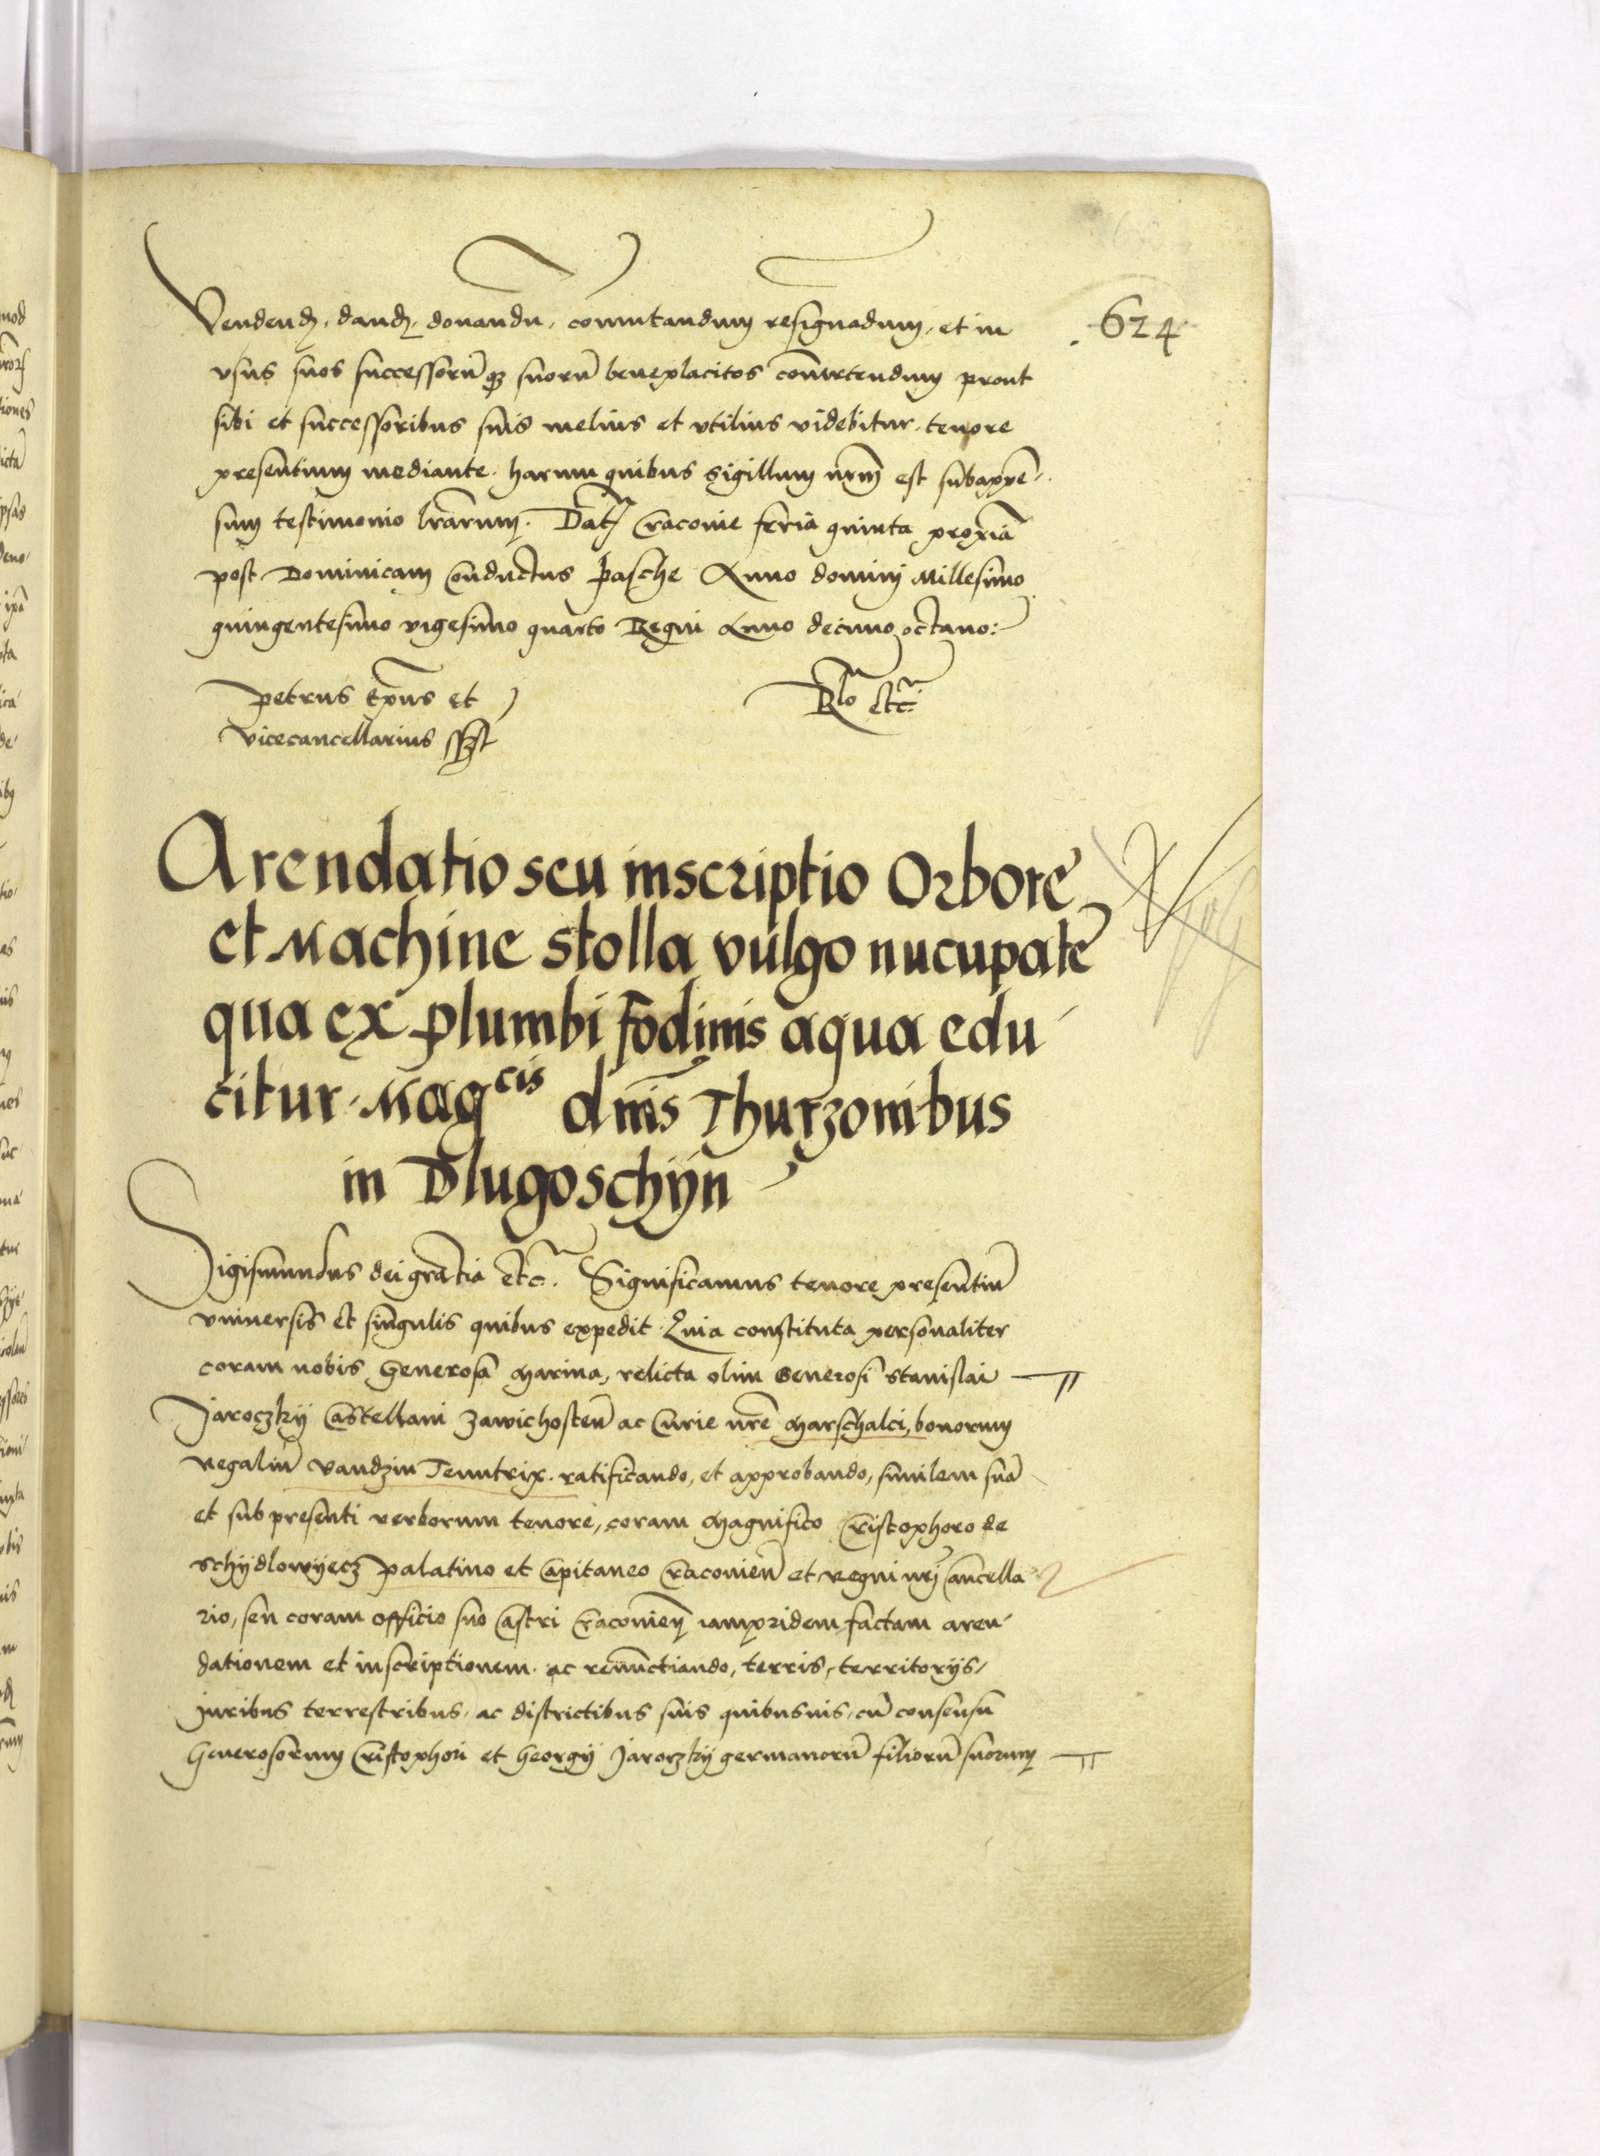 624
Vendend, dand, donandu, comutandum resignadum, et in
vsus suos successorū qz suorū beneplacitos conūertendum prout
sibi et successoribus suis melius et vtilius videbitur. tenore
presentium mediante. harum quibus sigillum nrm̄ est subappē-
sum testimonio lrārum. Dat Cracovie feria quinta proxīa
post Dominicam Conductus Pasche Anno domini Millesimo
quingentesimo vigesimo quarto Regni Anno decimo octauo:
Petrus Epūs et
Vicecancellarius sszst
Rlo etc
Arendatio seu inscriptio Orbore
et Machine stolla vulgo nucupatē
qua ex plumbi fodinis aqua edu
citur. Magcis dnis Thurzonibus
in Dlugoschÿn
Sigismundus dei gratia etc. Significamus tenore presentiū
vniuersis et singulis quibus expedit. Quia constituta personaliter
coram nobis Generosa Marina, relicta olim Generosi Stanislai
Jaroczkÿ Castellani Zawichosteñ ac Curie nrē Marschalci, bonorum
Regaliū Vandzin Tenutrix. ratificando, et approbando, similem suā
et sub presenti verborum tenore, coram Magnifico Cristophoro de
Schÿdlowÿecz Palatino et Capitaneo Cracovieñ et Regni nrj Cancella
rio, seu coram officio suo Castri Cracovieñ iampridem factam aren-
dationem et inscriptionem. ac renūnctiando, terris, territorijs,
Juribus terrestribus, ac districtibus suis quibusuis, cū consensu
Generosorum Cristophori et Georgÿ Jaroczkÿ germanorū filiorū suorum